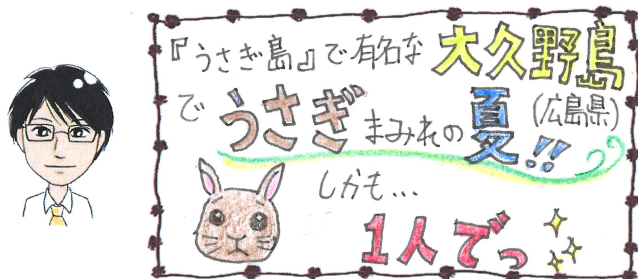 『うさぎ島』で有名な大久野島
(広島県)
でうさぎまみれの夏!!
しかも...
1人でっ